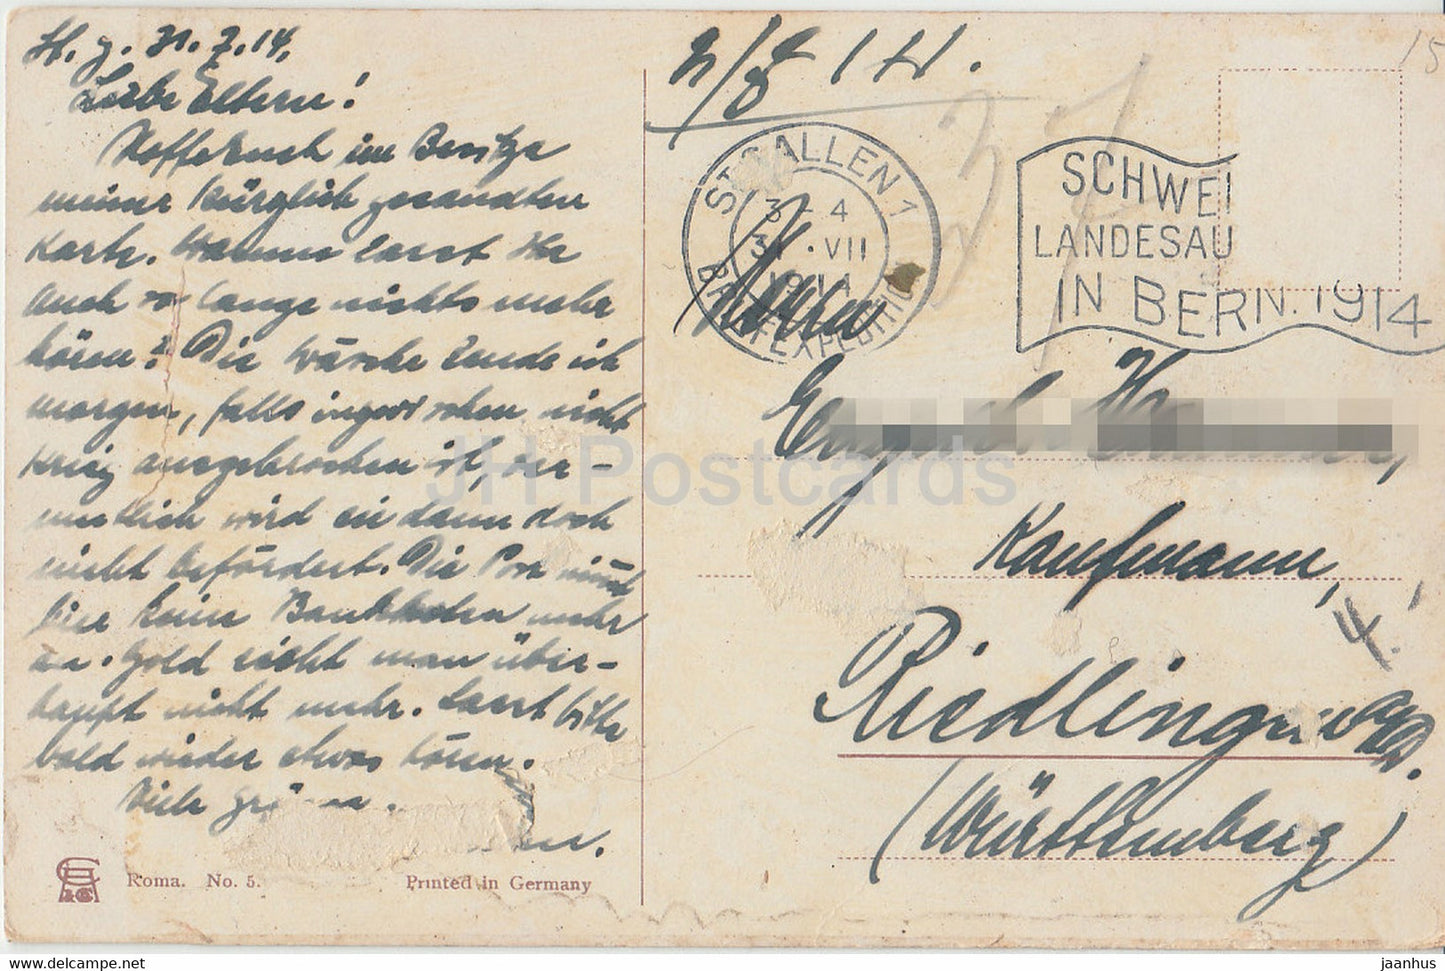 St. g. 31.7.14.
Liebe Eltern!
Hoffentlich im Besitze
meiner kürzlich gesandten
Karte. Warum lasst Ihr
auch so lange nichts mehr
hören? Die Wäsche sende ich
morgen, falls inzwischen nicht
Krieg ausgebrochen ist, ver-
mutlich wird sie dann doch
nicht befördert. Die Post nimmt
hier keine Banknoten mehr
an. Gold sieht man über-
haupt nicht mehr. Lasst bitte
bald wieder etwas hören.
Viele Grüsse.
Roma. No. 5.
Printed in Germany
2/8 14.
ST GALLEN 1
3-4
31.VII
1914
BRIEFEXPEDITION
SCHWEI
LANDESAU
IN BERN.1914
15
Herrn
Kaufmann,
Riedlingen a/D.
(Württemberg)
4.
JH Postcards
jaanhus